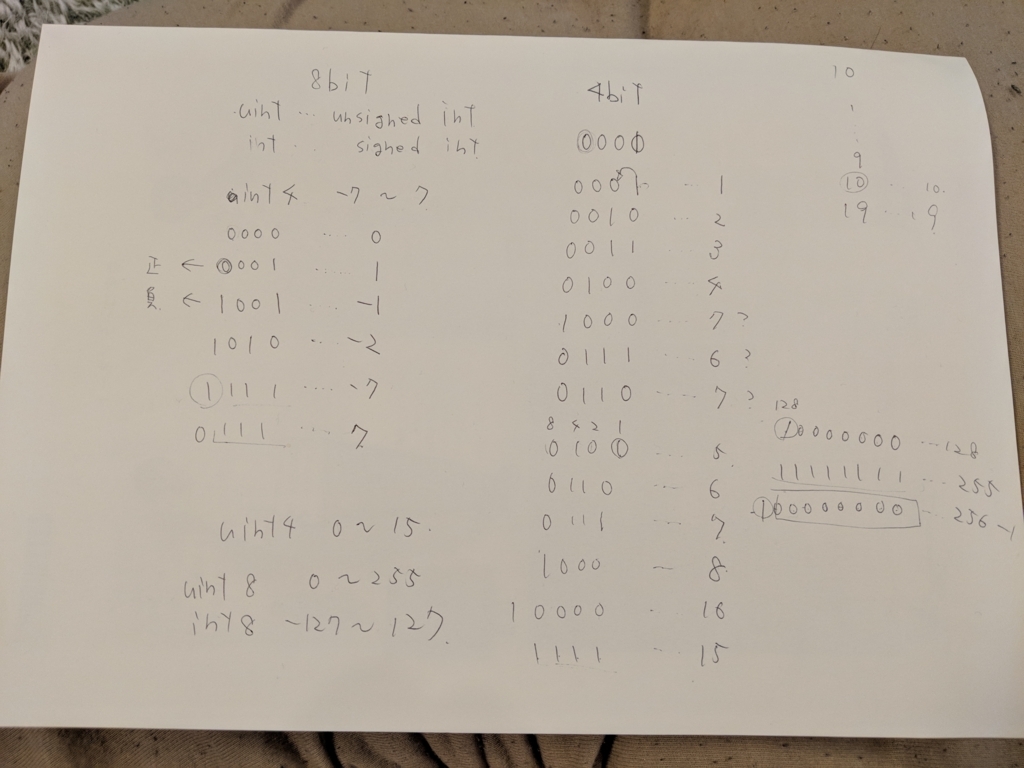 8bit
uint ... unsigned int
int ... signed int
uint4 -7 ~ 7
0000 .... 0
正 ← 0001 .... 1
負 ← 1001 .... -1
1010 ... -2
1111 .... -7
0111 .... 7
uint4 0 ~ 15.
uint8 0 ~ 255
int8 -127 ~ 127
4bit
0000
0001 ... 1
0010 ... 2
0011 ... 3
0100 ... 4
1000 .... 7?
0111 .... 6?
0110 .... 7?
8 4 2 1
0101 ... 5
0110 ... 6
0111 ... 7
1000 — 8
10000 .. 16
1111 ... 15
10
1
:
9
10 ... 10.
19 ... 19
128
10000000 ... 128
11111111 ... 255
100000000 ... 256-1